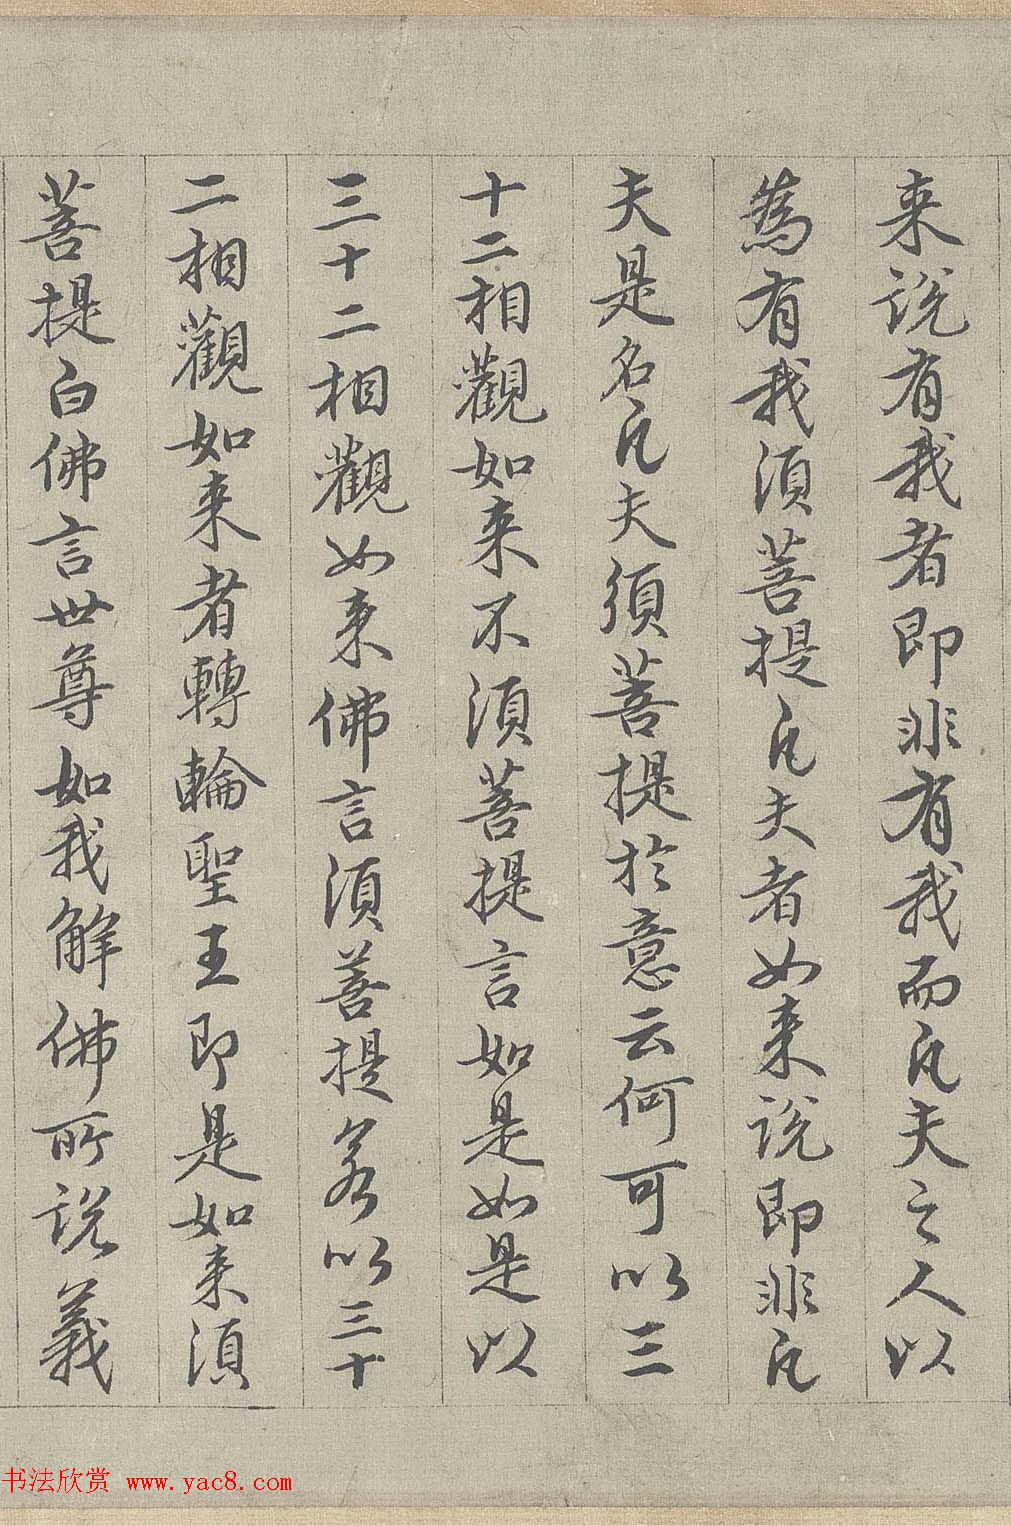 来说有我者即非有我而凡夫之人以
為有我須菩提凡夫者如来说即非凡
夫是名凡夫須菩提於意云何可以三
十二相觀如来不須菩提言如是如是以
三十二相觀如来佛言須菩提若以三十
二相觀如来者轉輪聖王即是如来須
菩提白佛言世尊如我解佛所说義
书法欣赏 www.yac8.com